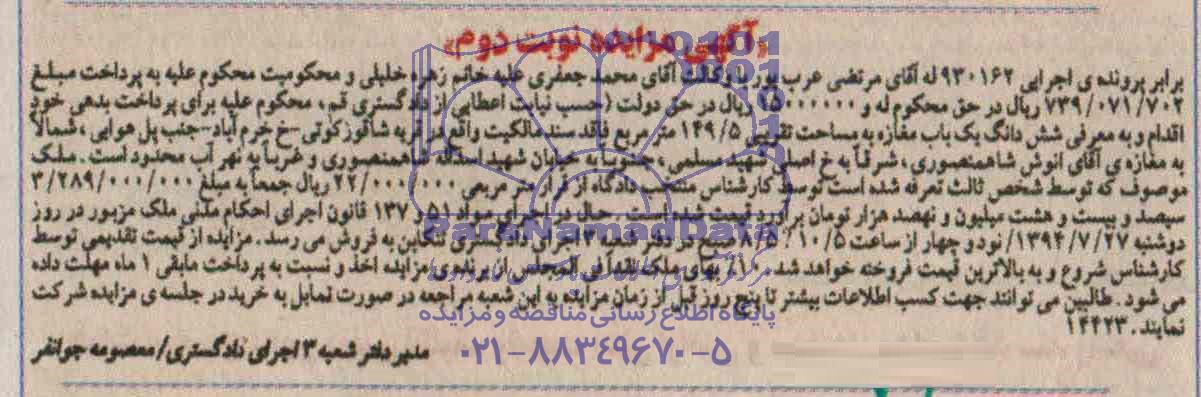 آگهی مزایده نوبت دوم
برابر پرونده ی اجرایی ۹۳۰۱۶۲ له آقای مرتضی عرب پور با وکالت آقای محمد جعفری علیه خانم زهره خلیلی و محکومیت محکوم علیه به پرداخت مبلغ
۷۳۹/۰۷۱/۷۰۲ ریال در حق محکوم له و ۱۵۰۰۰۰۰۰ ریال در حق دولت (حسب نیابت اعطایی از دادگستری قم، محکوم علیه برای پرداخت بدهی خود
اقدام و به معرفی شش دانگ یک باب مغازه به مساحت تقریبی ۱۴۹/۵ متر مربع فاقد سند مالکیت واقع در قریه شاقوزکوتی-خ خرم آباد-جنب پل هوایی، شمالاً
به مغازه ی آقای انوش شاهمنصوری، شرقاً به خ اصلی شهید مسلمی، جنوباً به خیابان شهید اسدالله شاهمنصوری و غرباً به نهر آب محدود است. ملک
موصوف که توسط شخص ثالث تعرفه شده است توسط کارشناس منتخب دادگاه از قرار متر مربعی ۲۲/۰۰۰/۰۰۰ ریال جمعاً به مبلغ ۳/۲۸۹/۰۰۰/۰۰۰
سیصد و بیست و هشت میلیون و نهصد هزار تومان برآورد قیمت شده است. حال در اجرای مواد ۵۱ و ۱۳۷ قانون اجرای احکام مدنی ملک مزبور در روز
دوشنبه ۱۳۹۴/۷/۲۷/ نود و چهار از ساعت ۸/۵ / ۱۰/۵ صبح در دفتر شعبه ۳ اجرای دادگستری تنکابن به فروش می رسد. مزایده از قیمت تقدیمی توسط
کارشناس شروع و به بالاترین قیمت فروخته خواهد شد. ۱۰٪ بهای ملک فی المجلس از برنده ی مزایده اخذ و نسبت به پرداخت مابقی ۱ ماه مهلت داده
می شود. طالبین می توانند جهت کسب اطلاعات بیشتر تا پنج روز قبل از زمان مزایده به این شعبه مراجعه در صورت تمایل به خرید در جلسه ی مزایده شرکت
نمایند. ۱۴۴۲۳
مدیر دفتر شعبه ۳ اجرای دادگستری/معصومه جوانفر
ParsNamadData
پایگاه اطلاع رسانی مناقصه و مزایده
۰۲۱-۸۸۳۴۹۶۷۰-۵